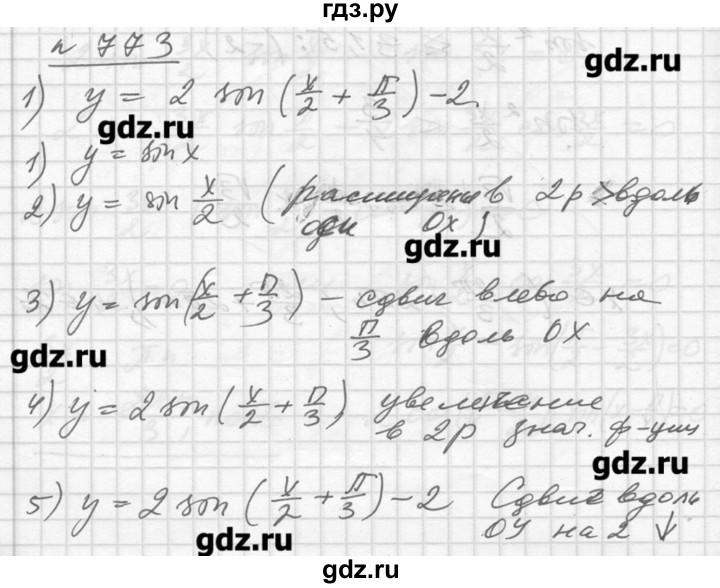 гдз.ру
n 773
gdz.ru
1) y = 2 sin (x/2 + π/3) - 2
gdz.ru
1) y = sin x
2) y = sin x/2 (расширение в 2р > вдоль
оси Ox)
gdz.ru
3) y = sin (x/2 + π/3) - сдвиг влево на
π/3 вдоль OX
gdz.ru
4) y = 2 sin (x/2 + π/3) увеличение
в 2р знач. ф-ции
gdz.ru
5) y = 2 sin (x/2 + π/3) - 2 Сдвиг вдоль
OY на 2 ↓
gdz.ru
gdz.ru